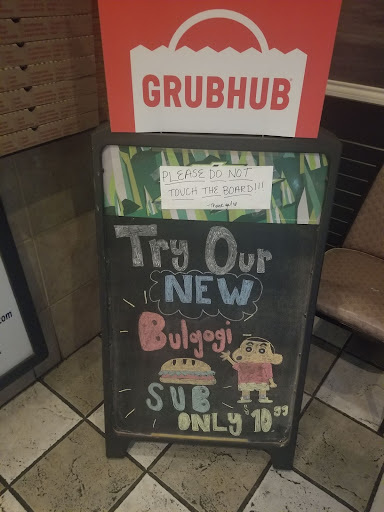 GRUBHUB
PLEASE DO NOT
TOUCH THE BOARD!!!
Try Our
NEW
Bulgogi
SUB
ONLY $10.99
.com